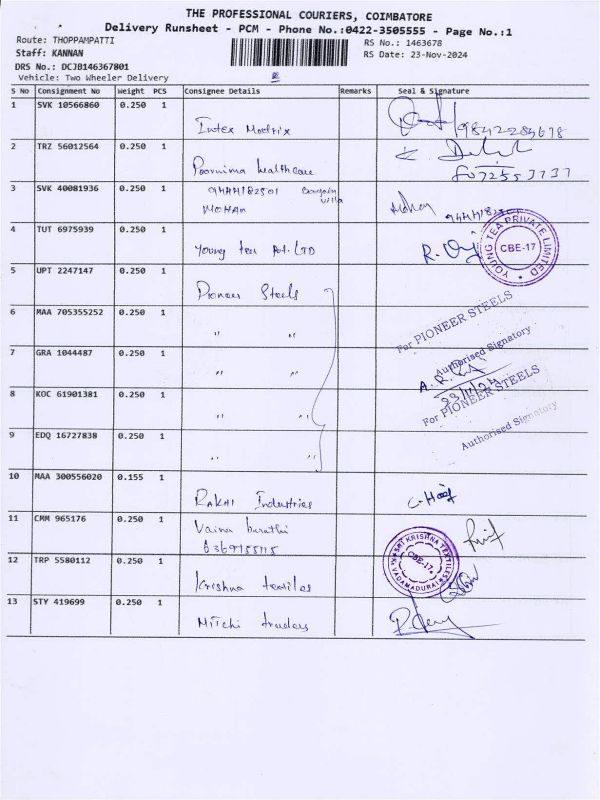 THE PROFESSIONAL COURIERS, COIMBATORE
Delivery Runsheet - PCM - Phone No.:0422-3505555 - Page No.:1
Route: THOPPAMPATTI
RS No.: 1463678
Staff: KANNAN
RS Date: 23-Nov-2024
DRS No.: DCJB146367801
Vehicle: Two Wheeler Delivery
S No Consignment No Weight PCS Consignee Details Remarks Seal & Signature
1 SVK 10566860 0.250 1
Intex Modrix
9842284678
2 TRZ 56012564 0.250 1
Poornima healthcare
3 SVK 40081936 0.250 1 9444182501 Bargain villa
MOHAN
Mohan 9444182501
4 TUT 6975939 0.250 1
Young tea Pvt. LTD
YOUNG TEA PRIVATE LIMITED
CBE-17
5 UPT 2247147 0.250 1 Pioneer Steels
6 MAA 705355252 0.250 1
" "
For PIONEER STEELS
7 GRA 1044487 0.250 1
" "
Authorised Signatory
8 KOC 61901381 0.250 1
" "
23/11/24
For PIONEER STEELS
9 EDQ 16727838 0.250 1
" "
Authorised Signatory
10 MAA 300556020 0.155 1
RAKHI Industries
11 CMM 965176 0.250 1 barathi
12 TRP 5580112 0.250 1
Krishna textiles
SRI KRISHNA TEXTILES
CBE-17.
VADAMADURAI
13 STY 419699 0.250 1
Mitchi traders